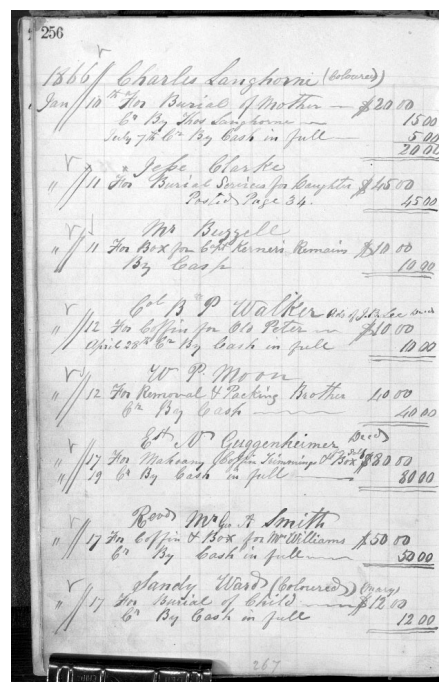 256
1866 Charles Langhorne (Coloured)
Jan 10th For Burial of Mother — $20 00
Cr By Thos Langhorne — 15 00
July 7th Cr By Cash in full — 5 00
20 00
Jesse Clarke
" 11 For Burial Services for Daughter $45 00
Posted Page 34. 45 00
Mr Buzzell
" 11 For Box for Capt Kerner's Remains $10 00
By Cash 10 00
Col B P Walker Lee Decd
" 12 For Coffin for Old Peter — $10 00
April 28th Cr By Cash in full 10 00
W P. Moon
" 12 For Removal & Packing Brother 40 00
Cr By Cash — 40 00
Est N Guggenheimer Decd
" 17 For Mahoany Coffin Trimmings Box $80 00
" 19 Cr By Cash in full — 80 00
Revd Mr A Smith
" 17 For Coffin & Box for Mr Williams $50 00
Cr By Cash in full — 50 00
Sandy Ward (Coloured)
" 17 For Burial of Child — $12 00
Cr By Cash in full 12 00
267